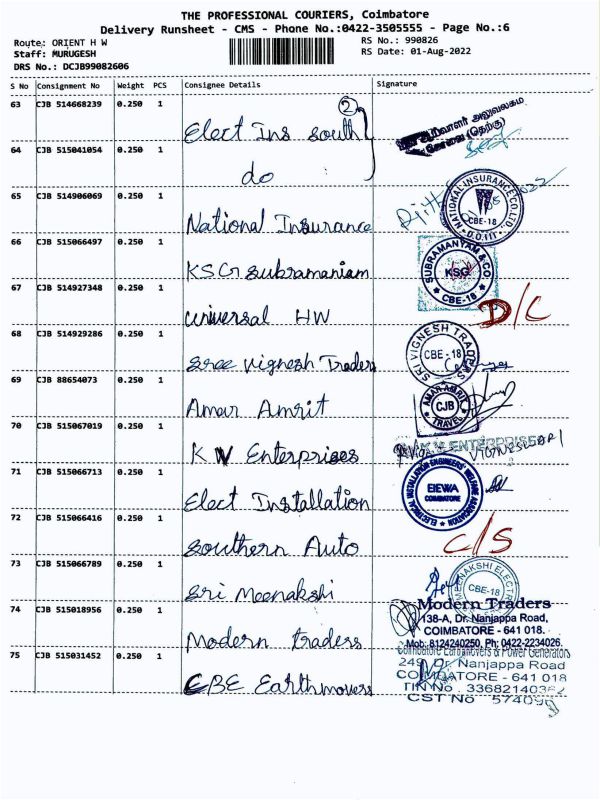 THE PROFESSIONAL COURIERS, Coimbatore
Delivery Runsheet - CMS - Phone No.:0422-3505555 - Page No.:6
Route: ORIENT H W
RS No.: 990826
Staff: MURUGESH
RS Date: 01-Aug-2022
DRS No.: DCJB99082606
S No Consignment No Weight PCS Consignee Details Signature
63 CJB 514668239 0.250 1 Elect Ins south 2
அலுவலகம்
(தெற்கு)
64 CJB 515041054 0.250 1 do
65 CJB 514906069 0.250 1 National Insurance
NATIONAL INSURANCE CO. LTD.
CBE-18
66 CJB 515066497 0.250 1 KSG Subramaniam
SUBRAMANYAM & CO
KSG
CBE-18
67 CJB 514927348 0.250 1 Universal HW D/C
68 CJB 514929286 0.250 1 Sree Vignesh Traders
SRI VIGNESH TRADERS
CBE-18
69 CJB 88654073 0.250 1 Amar Amrit
AMAR AMRIT
CJB
TRAVEL
70 CJB 515067019 0.250 1 K V Enterprises
K.V ENTERPRISES
71 CJB 515066713 0.250 1 Elect Installation
ELECTRICAL INSTALLATION ENGINEERS' WELFARE ASSOCIATION
EIEWA
COIMBATORE
72 CJB 515066416 0.250 1 Southern Auto C/S
73 CJB 515066789 0.250 1 Sri Meenakshi
MEENAKSHI ELECTRI
CBE-18
74 CJB 515018956 0.250 1 Modern Traders
Modern Traders
138-A, Dr. Nanjappa Road,
COIMBATORE - 641 018.
Mob: 8124240250, Ph: 0422-2234026
75 CJB 515031452 0.250 1 CBE Earthmovers
Coimbatore Earthmovers & Power Generators
249, Dr. Nanjappa Road
COIMBATORE - 641 018
TIN No . 33682140362
CST No 574090